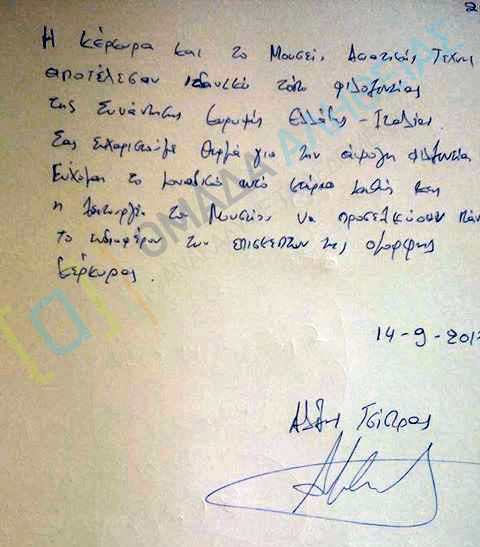 Η Κέρκυρα και το Μουσείο Ασιατικής Τέχνης
αποτέλεσαν ιδανικό τόπο φιλοξενίας
της Συνάντησης Κορυφής Ελλάδας - Ιταλίας
Σας ευχαριστούμε θερμά για την άψογη φιλοξενία
Εύχομαι το μοναδικό αυτό κτίριο καθώς και
η λειτουργία του Μουσείου, να προσελκύσουν πάν
το ενδιαφέρον των επισκεπτών της όμορφης
Κέρκυρας.
14-9-201
Αλέξης Τσίπρας
ΟΜΑΔΑ ΑΛΗΘΕΙΑΣ